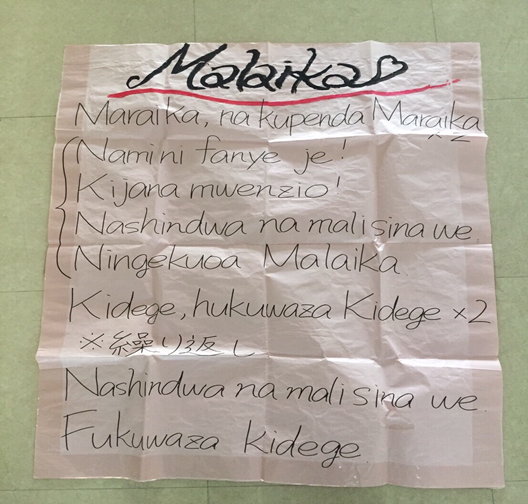 Malaika♡
Maraika, na kupenda Maraika ×2
Namini fanye je!
Kijana mwenzio!
Nashindwa na mali sina we.
Ningekuoa Malaika.
Kidege, hukuwaza Kidege ×2
※繰り返し
Nashindwa na mali sina we.
Fukuwaza kidege